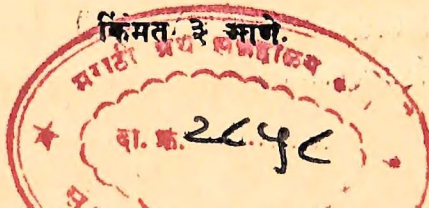 किंमत ३ आणे.
मराठी ग्रंथ संग्रहालय
दा. क्र. २८५८